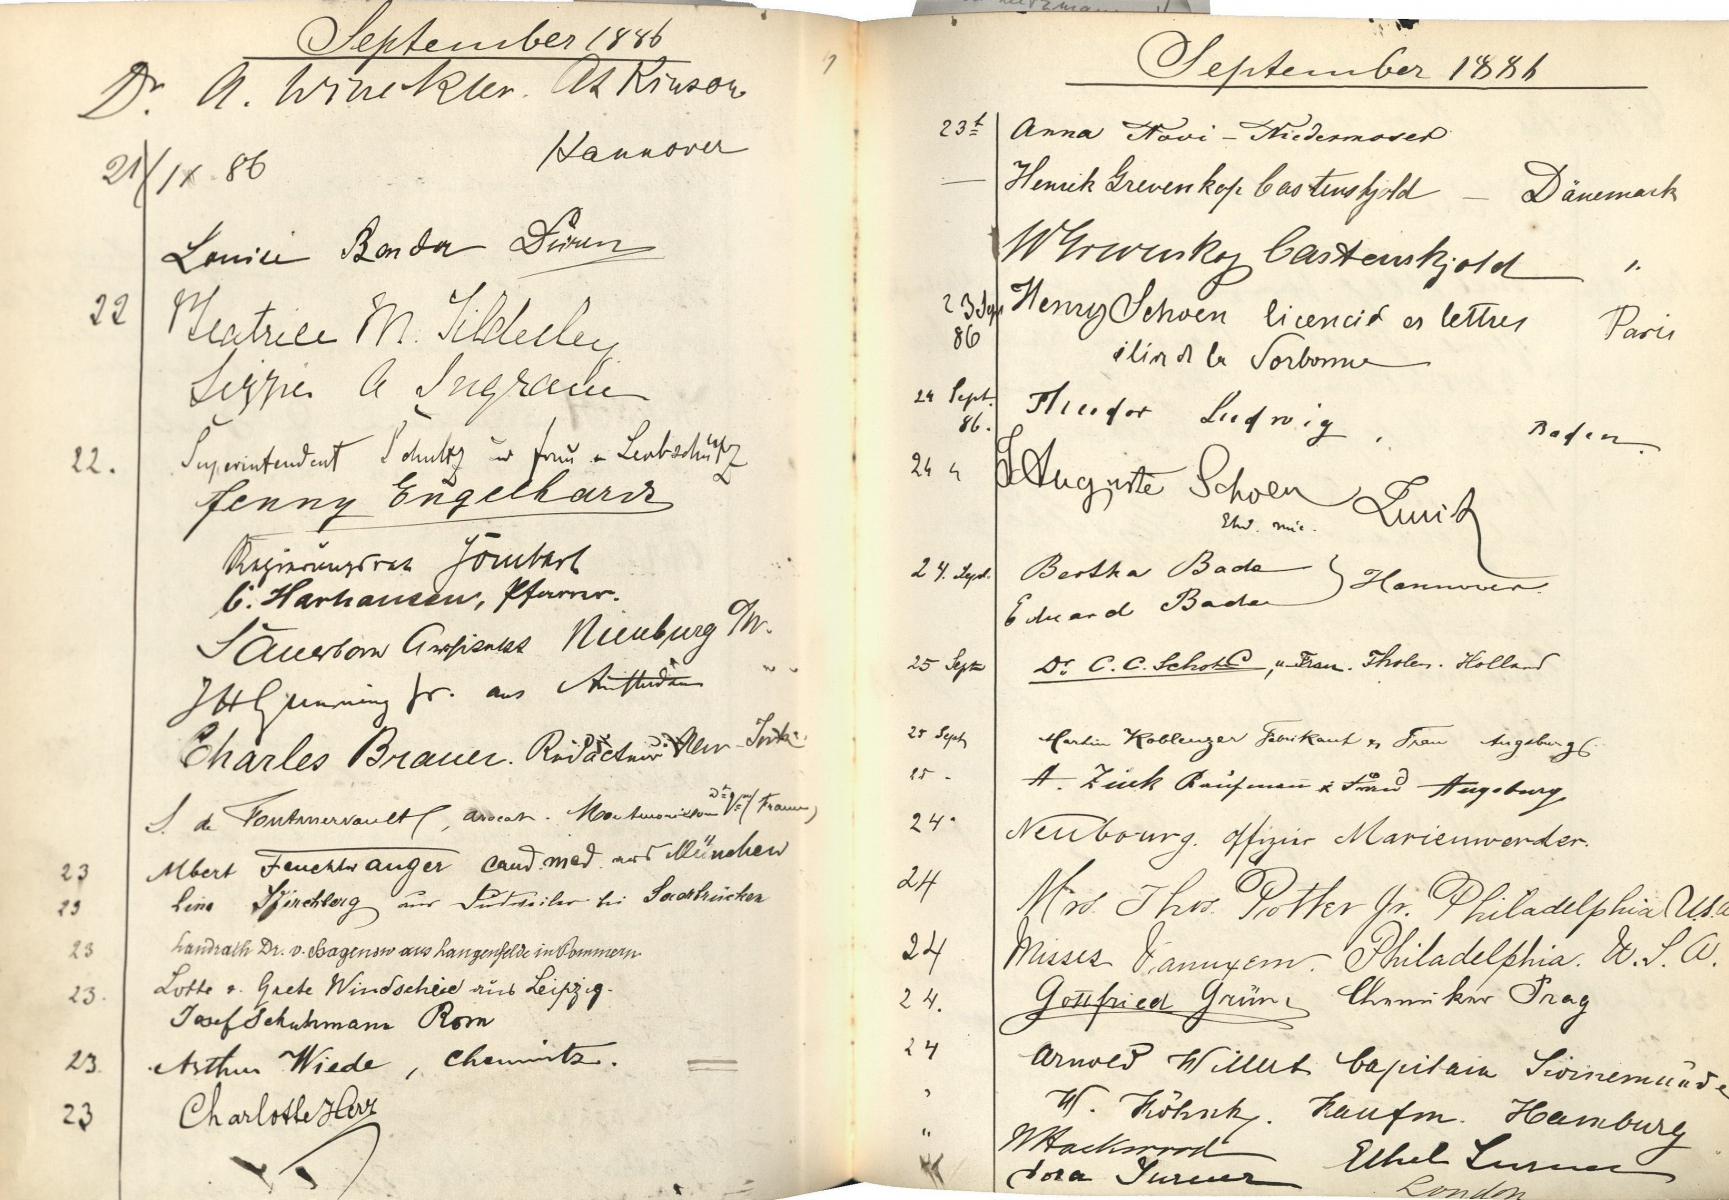 September 1886
Dr. A. Winckler. Atkinson
Hannover
21/IX 86
Louise Bender Düren
22 Beatrice M. Tildesley
Lizzie A Ingram
22. Superintendent Schultz u frau a Leobschütz
Jenny Engelhardt
Regierungsrat Jombart
C. Harhausen, Pfarrer.
Sauerborn Nienburg
JH Gunning Jr. aus Amsterdam
Charles Brauer. Redacteur New-York
S. de avocat.
23 Albert Feuchtwanger cand. med. aus München
23 Lina Kirchberg aus bei Saarbrücken
23 Landrath Dr. v. Hagenow aus Langenfelde in Pommern
23. Lotte u. Grete Windscheid aus Leipzig.
Josef Schuhmann Rom
23. Arthur Wiede, Chemnitz.
23 Charlotte Herz
September 1886
23t Anna Novi - Niedermoser
— Henrik Grevenkop Castenskjold — Dänemark
W Grevenkop Castenskjold "
23 Sept 86 Henry Schoen licencié es lettres Paris
de la Sorbonne
24 Sept. 86. Theodor Ludwig, Baden.
24 " Auguste Schoen
24. Sept. Bertha Bade } Hannover.
Eduard Bade
25 Sept Dr. C. C. Schot, u. Frau. Tholen. Holland
25 Sept Martin Koblenzer Fabrikant & Frau Augsburg
25 - A. Zink Kaufmann & Frau Augsburg
24" Neubourg. Offizier Marienwerder.
24 Mrs. Thos. Potter Jr. Philadelphia U.S.A
24 Misses Vanuxem. Philadelphia. U. S. A.
24. Gottfried Grün Chemiker Prag
24 Arnold Willert Capitain Swinemünde
" W. Köhnk. Kaufm. Hamburg
" W Hackwood
Dora Turner Ethel Turner
London